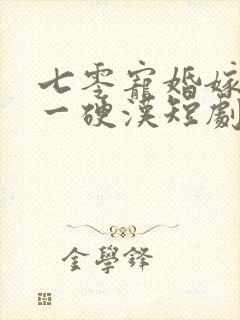 七零寵婚嫁
一硬漢短劇
金學鋒